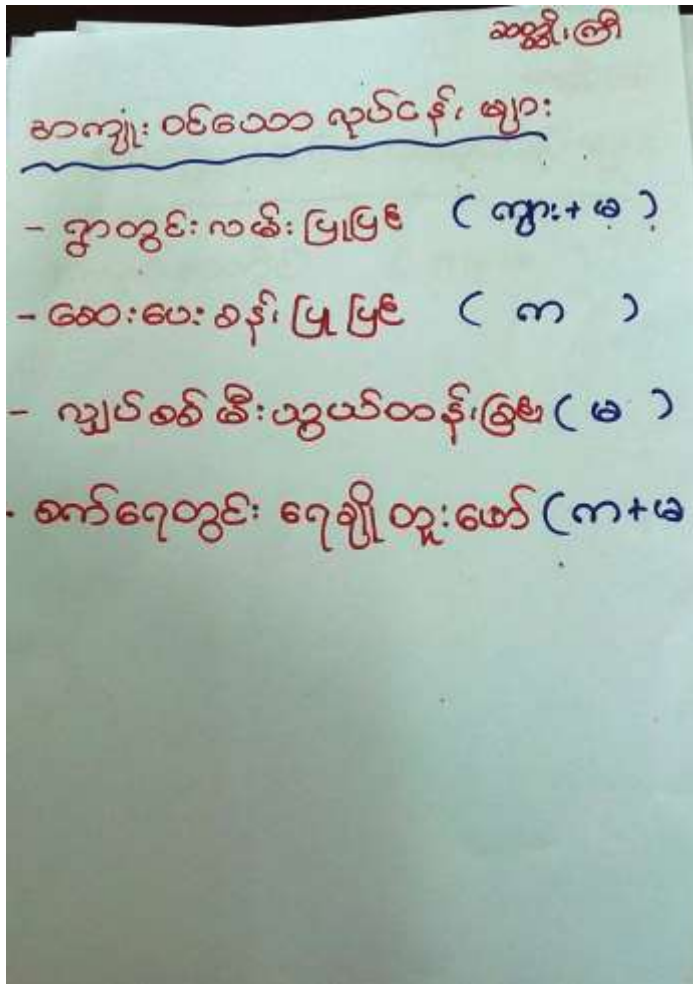 ဆတ္တိုးကြီး
အကျုံးဝင်သော လုပ်ငန်းများ
- ရွာတွင်းလမ်းပြုပြင် (ကျား+မ)
- ဆေးပေးခန်း ပြုပြင် (က )
- လျှပ်စစ်မီးသွယ်တန်းခြင်း (မ )
- စက်ရေတွင်း ရေချိုတူးဖော် (က+မ